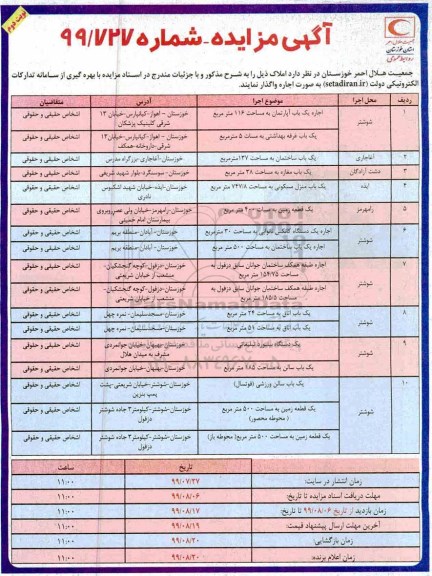 نوبت دوم
آگهی مزایده - شماره ۹۹/۷۲۷
جمعیت هلال احمر
استان خوزستان
روابط عمومی
جمعیت هلال احمر خوزستان در نظر دارد املاک ذیل را به شرح مذکور و با جزئیات مندرج در اسناد مزایده با بهره گیری از سامانه تدارکات
الکترونیکی دولت (setadiran.ir) به صورت اجاره واگذار نمایند.
ردیف محل اجرا موضوع اجرا آدرس متقاضیان
۱ شوشتر اجاره یک باب آپارتمان به مساحت ۱۱۶ متر مربع خوزستان - اهواز-کیانپارس-خیابان ۱۳ شرقی کلینیک پزشکان اشخاص حقیقی و حقوقی
یک باب غرفه بهداشتی به مساحت ۵ مترمربع خوزستان - اهواز-کیانپارس-خیابان ۱۳ شرقی-داروخانه-همکف اشخاص حقیقی و حقوقی
۲ آغاجاری یک باب ساختمان به مساحت ۱۳۷مترمربع خوزستان-آغاجاری-بزرگراه مدرس اشخاص حقیقی و حقوقی
۳ دشت آزادگان یک باب مغازه به مساحت ۳۸ متر مربع خوزستان- سوسنگرد-بلوار شهید شریفی اشخاص حقیقی و حقوقی
۴ ایذه یک باب منزل مسکونی به مساحت ۷۴۷/۸ متر مربع خوزستان-ایذه-خیابان شهید اشکبوس نادری اشخاص حقیقی و حقوقی
۵ رامهرمز یک قطعه زمین به مساحت ۴۰۰ متر مربع خوزستان-رامهرمز-خیابان ولی عصر-روبروی بیمارستان امام خمینی اشخاص حقیقی و حقوقی
۶ شوشتر اجاره یک دستگاه کانکس نانوائی به مساحت ۳۰ مترمربع خوزستان-آبادان-منطقه بریم اشخاص حقیقی و حقوقی
اجاره یک باب ساختمان به مساحت ۵۰۰ متر مربع خوزستان-آبادان-منطقه بریم اشخاص حقیقی و حقوقی
۷ شوشتر اجاره طبقه همکف ساختمان جوانان سابق دزفول به مساحت ۱۵۴/۷۵ متر مربع خوزستان-دزفول-کوچه گنجشکیان- منشعب از خیابان شریعتی اشخاص حقیقی و حقوقی
اجاره طبقه همکف ساختمان جوانان سابق دزفول به مساحت ۱۸۵/۵ متر مربع خوزستان-دزفول-کوچه گنجشکیان- منشعب از خیابان شریعتی اشخاص حقیقی و حقوقی
۸ شوشتر یک باب اتاق به مساحت ۲۴ متر مربع خوزستان-مسجدسلیمان- نمره چهل اشخاص حقیقی و حقوقی
یک باب اتاق به مساحت ۵۱ متر مربع خوزستان-مسجدسلیمان- نمره چهل اشخاص حقیقی و حقوقی
۹ شوشتر یک دستگاه بیلبورد تبلیغاتی خوزستان-بهبهان-خیابان جوانمردی مشرف به میدان هلال اشخاص حقیقی و حقوقی
یک باب سالن به مساحت ۷۸۵ متر مربع خوزستان-بهبهان-خیابان جوانمردی اشخاص حقیقی و حقوقی
۱۰ شوشتر یک باب سالن ورزشی (فوتسال) خوزستان-شوشتر-خیابان شریعتی-پشت پمپ بنزین اشخاص حقیقی و حقوقی
یک قطعه زمین به مساحت ۵۰۰ متر مربع ( محوطه محصور) خوزستان-شوشتر-کیلومتر۳ جاده شوشتر دزفول اشخاص حقیقی و حقوقی
یک قطعه زمین به مساحت ۵۰۰ متر مربع( محوطه باز) خوزستان-شوشتر-کیلومتر۳ جاده شوشتر دزفول اشخاص حقیقی و حقوقی
تاریخ ساعت
زمان انتشار در سایت: ۹۹/۰۷/۲۷ ۱۱:۰۰
مهلت دریافت اسناد مزایده تا تاریخ: ۹۹/۰۸/۰۶ ۱۱:۰۰
زمان بازدید از تاریخ ۹۹/۰۸/۰۶ تا تاریخ: ۹۹/۰۸/۱۷ ۱۱:۰۰
آخرین مهلت ارسال پیشنهاد قیمت: ۹۹/۰۸/۱۹ ۱۱:۰۰
زمان بازگشایی: ۹۹/۰۸/۲۰ ۱۱:۰۰
زمان اعلام برنده: ۹۹/۰۸/۲۰ ۱۱:۰۰